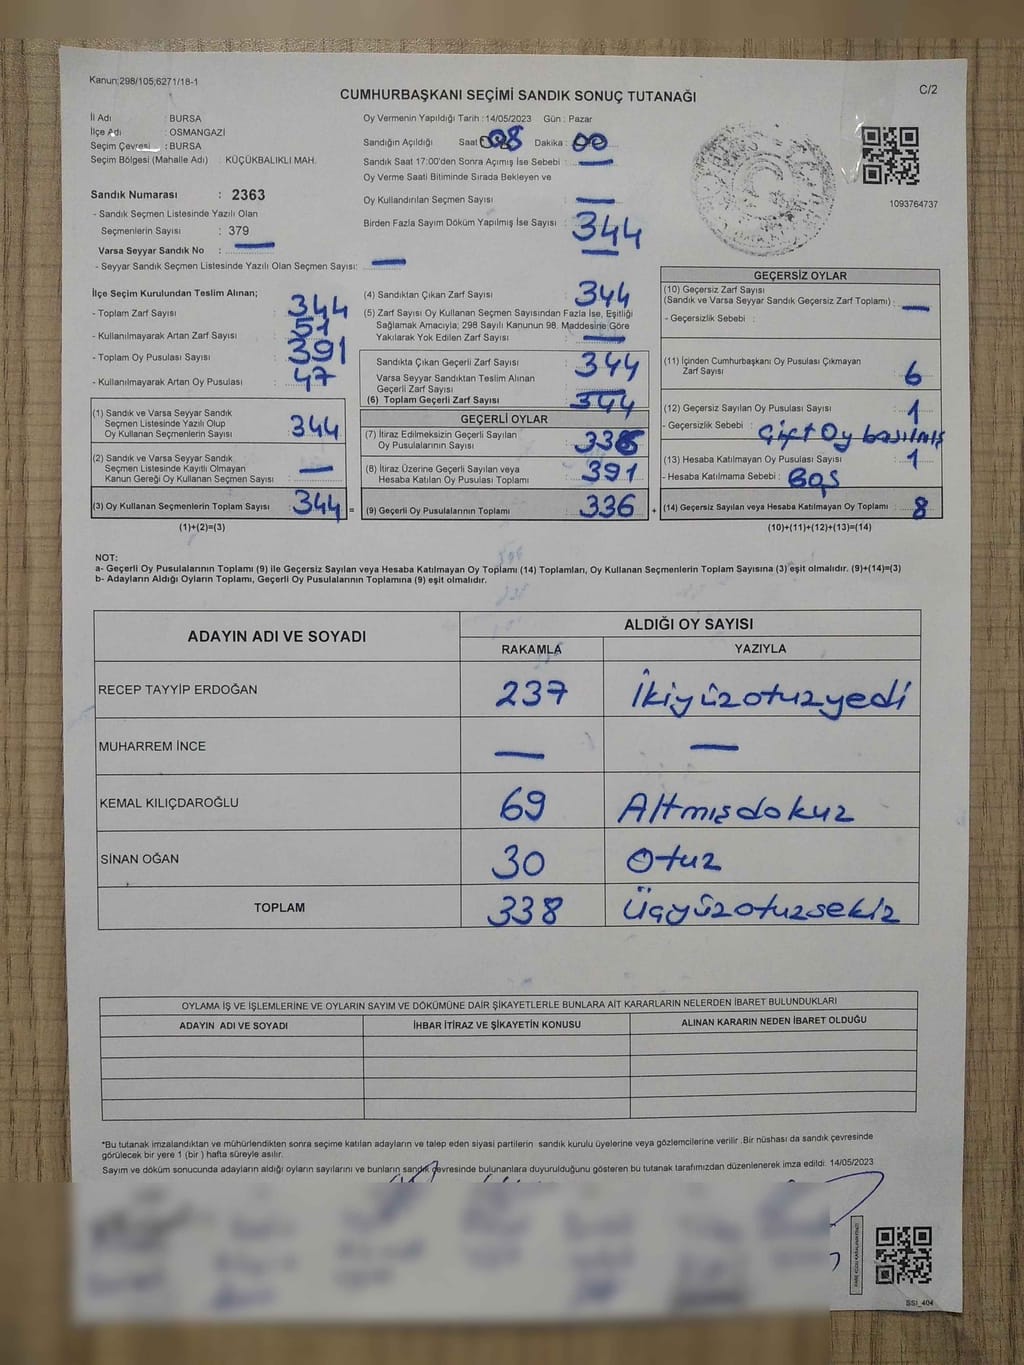 Kanun;298/105;6271/18-1
C/2
CUMHURBAŞKANI SEÇİMİ SANDIK SONUÇ TUTANAĞI
İl Adı : BURSA
İlçe Adı : OSMANGAZİ
Seçim Çevresi : BURSA
Seçim Bölgesi (Mahalle Adı) : KÜÇÜKBALIKLI MAH.
Sandık Numarası : 2363
- Sandık Seçmen Listesinde Yazılı Olan
Seçmenlerin Sayısı : 379
Varsa Seyyar Sandık No : —
- Seyyar Sandık Seçmen Listesinde Yazılı Olan Seçmen Sayısı: —
Oy Vermenin Yapıldığı Tarih :14/05/2023 Gün : Pazar
Sandığın Açıldığı Saat 08 Dakika : 00
Sandık Saat 17:00'den Sonra Açımış İse Sebebi : —
Oy Verme Saati Bitiminde Sırada Bekleyen ve
Oy Kullandırılan Seçmen Sayısı : —
Birden Fazla Sayım Döküm Yapılmış İse Sayısı : 344
1093764737
İlçe Seçim Kurulundan Teslim Alınan;
- Toplam Zarf Sayısı : 344
- Kullanılmayarak Artan Zarf Sayısı : 51
- Toplam Oy Pusulası Sayısı : 391
- Kullanılmayarak Artan Oy Pusulası : 47
(1) Sandık ve Varsa Seyyar Sandık
Seçmen Listesinde Yazılı Olup
Oy Kullanan Seçmenlerin Sayısı : 344
(2) Sandık ve Varsa Seyyar Sandık
Seçmen Listesinde Kayıtlı Olmayan
Kanun Gereği Oy Kullanan Seçmen Sayısı : —
(3) Oy Kullanan Seçmenlerin Toplam Sayısı : 344 =
(1)+(2)=(3)
(4) Sandıktan Çıkan Zarf Sayısı : 344
(5) Zarf Sayısı Oy Kullanan Seçmen Sayısından Fazla İse, Eşitliği
Sağlamak Amacıyla; 298 Sayılı Kanunun 98. Maddesine Göre
Yakılarak Yok Edilen Zarf Sayısı : —
Sandıkta Çıkan Geçerli Zarf Sayısı : 344
Varsa Seyyar Sandıktan Teslim Alınan
Geçerli Zarf Sayısı : —
(6) Toplam Geçerli Zarf Sayısı : 344
GEÇERLİ OYLAR
(7) İtiraz Edilmeksizin Geçerli Sayılan
Oy Pusulalarının Sayısı :
(8) İtiraz Üzerine Geçerli Sayılan veya
Hesaba Katılan Oy Pusulası Toplamı : 391
(9) Geçerli Oy Pusulalarının Toplamı : 336 +
GEÇERSİZ OYLAR
(10) Geçersiz Zarf Sayısı
(Sandık ve Varsa Seyyar Sandık Geçersiz Zarf Toplamı) : —
- Geçersizlik Sebebi :
(11) İçinden Cumhurbaşkanı Oy Pusulası Çıkmayan
Zarf Sayısı : 6
(12) Geçersiz Sayılan Oy Pusulası Sayısı : 1
- Geçersizlik Sebebi : Çift Oy basılmış
(13) Hesaba Katılmayan Oy Pusulası Sayısı : 1
- Hesaba Katılmama Sebebi : Boş
(14) Geçersiz Sayılan veya Hesaba Katılmayan Oy Toplamı : 8
(10)+(11)+(12)+(13)=(14)
NOT:
a- Geçerli Oy Pusulalarının Toplamı (9) ile Geçersiz Sayılan veya Hesaba Katılmayan Oy Toplamı (14) Toplamları, Oy Kullanan Seçmenlerin Toplam Sayısına (3) eşit olmalıdır. (9)+(14)=(3)
b- Adayların Aldığı Oyların Toplamı, Geçerli Oy Pusulalarının Toplamına (9) eşit olmalıdır.
ADAYIN ADI VE SOYADI ALDIĞI OY SAYISI
RAKAMLA YAZIYLA
RECEP TAYYİP ERDOĞAN 237 İkiyüzotuzyedi
MUHARREM İNCE — —
KEMAL KILIÇDAROĞLU 69 Altmışdokuz
SİNAN OĞAN 30 Otuz
TOPLAM 338 Üçyüzotuzsekiz
OYLAMA İŞ VE İŞLEMLERİNE VE OYLARIN SAYIM VE DÖKÜMÜNE DAİR ŞİKAYETLERLE BUNLARA AİT KARARLARIN NELERDEN İBARET BULUNDUKLARI
ADAYIN ADI VE SOYADI İHBAR İTİRAZ VE ŞİKAYETİN KONUSU ALINAN KARARIN NEDEN İBARET OLDUĞU
*Bu tutanak imzalandıktan ve mühürlendikten sonra seçime katılan adayların ve talep eden siyasi partilerin sandık kurulu üyelerine veya gözlemcilerine verilir .Bir nüshası da sandık çevresinde
görülecek bir yere 1 (bir ) hafta süreyle asılır.
Sayım ve döküm sonucunda adayların aldığı oyların sayılarını ve bunların sandık çevresinde bulunanlara duyurulduğunu gösteren bu tutanak tarafımızdan düzenlenerek imza edildi. 14/05/2023
SSI_404